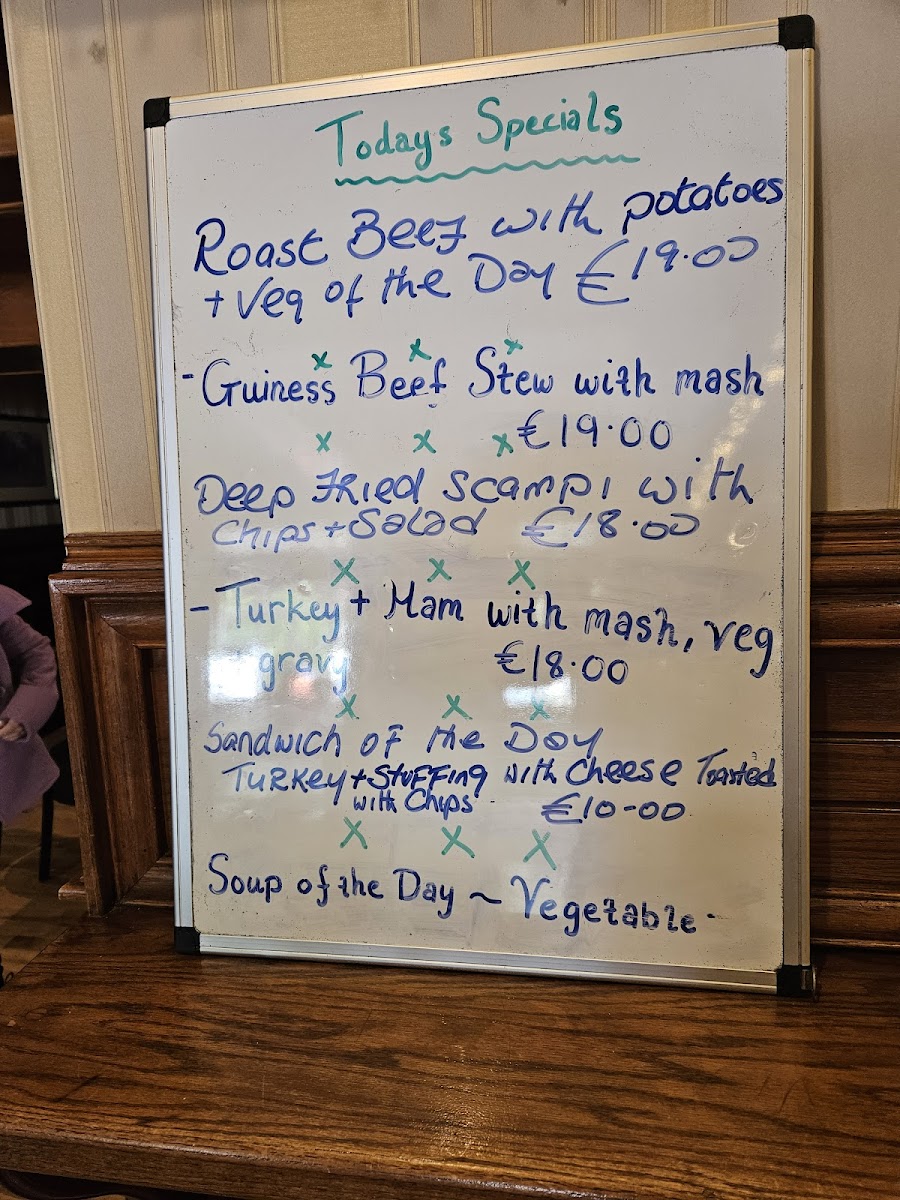 Todays Specials
Roast Beef with potatoes
+ Veg of the Day €19.00
x x x
- Guiness Beef Stew with mash
€19.00
x x x
Deep Fried Scampi with
Chips + Salad €18.00
x x x
- Turkey + Ham with mash, veg
+ gravy €18.00
x x x
Sandwich of the Day
Turkey + Stuffing with cheese Toasted
with Chips €10-00
x x x
Soup of the Day ~ Vegetable